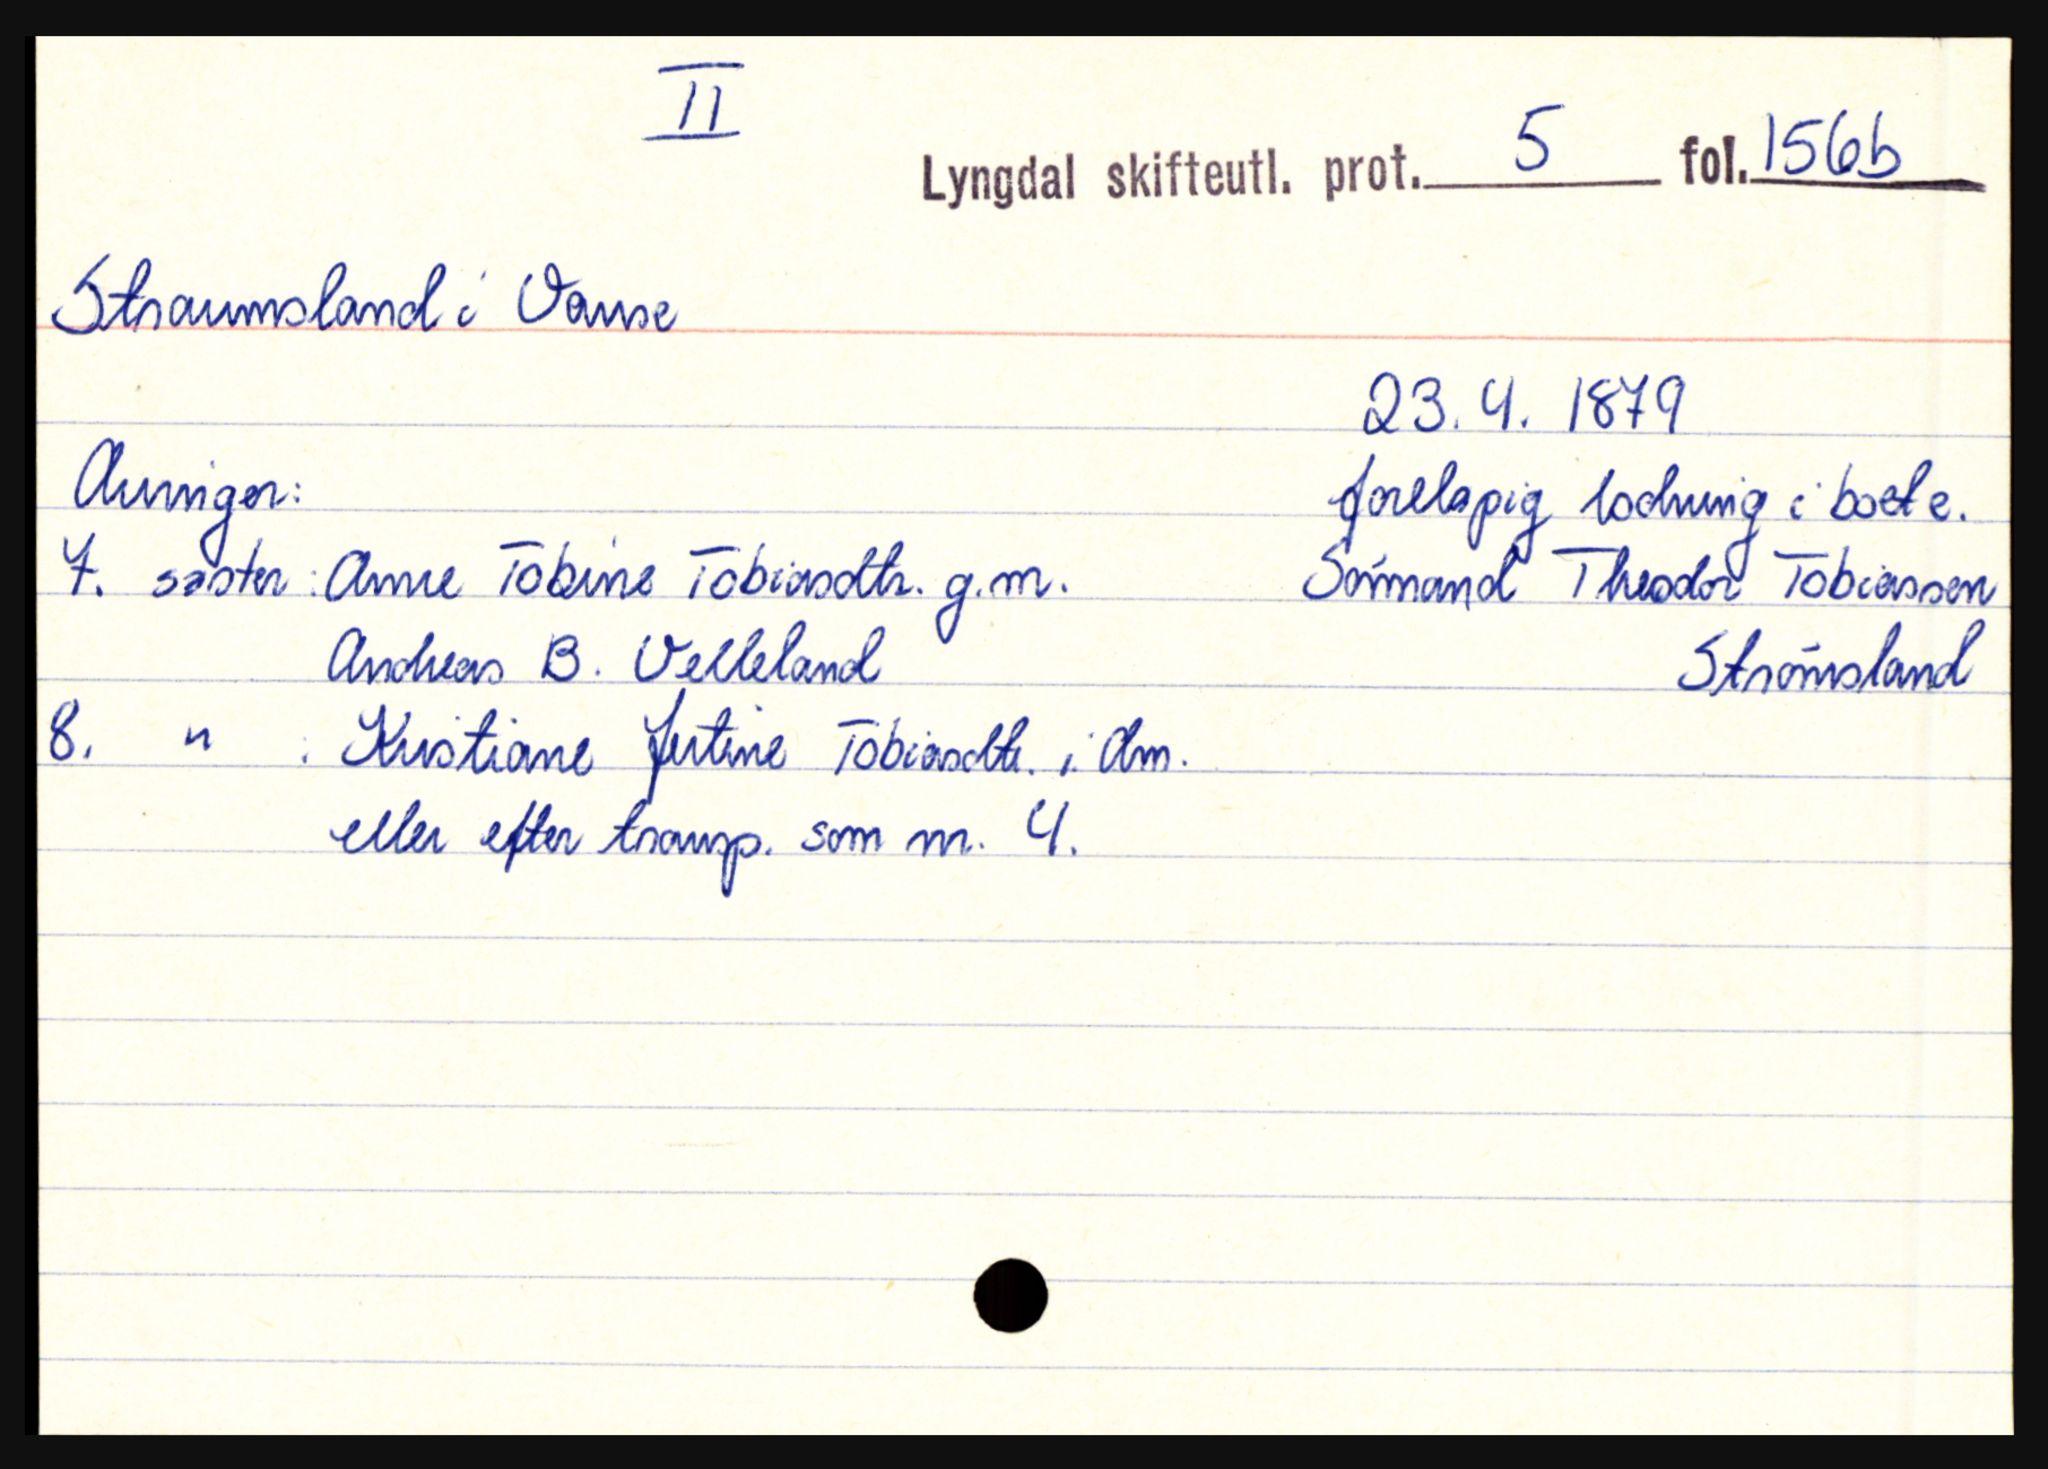 II
Lyngdal skifteutl. prot. 5 fol. 156b
Straumsland i Vanse
23.4. 1879
Arvinger:
foreløpig lodning i boet e.
7. søster: Anne Tobine Tobiasdtr. g.m.
Sömand Theodor Tobiassen
Andreas B. Velleland
Strömsland
8. " : Kristiane Jertine Tobiasdtr. i Am.
eller efter transp. som nr. 4.